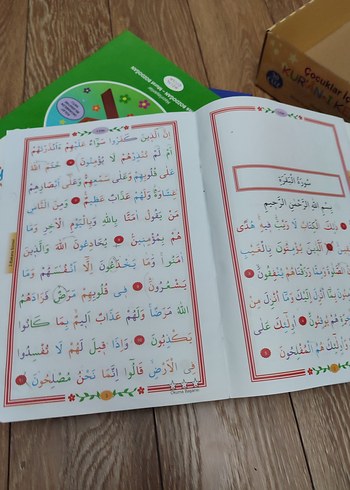 سُورَةُ الْبَقَرَةِ
بِسْمِ اللّٰهِ الرَّحْمٰنِ الرَّحِيمِ
ذٰلِكَ الْكِتَابُ لَا رَيْبَ فِيهِ هُدًى
اَلَّذِينَ يُؤْمِنُونَ بِالْغَيْبِ
الصَّلٰوةَ وَمِمَّا رَزَقْنَاهُمْ يُنْفِقُونَ
بِمَا اُنْزِلَ اِلَيْكَ وَمَا اُنْزِلَ مِنْ
هُمْ يُوقِنُونَ اُولٰئِكَ عَلٰى
وَاُولٰئِكَ هُمُ الْمُفْلِحُونَ
اِنَّ الَّذِينَ كَفَرُوا سَوَاءٌ عَلَيْهِمْ ءَاَنْذَرْتَهُمْ
اَمْ لَمْ تُنْذِرْهُمْ لَا يُؤْمِنُونَ خَتَمَ اللّٰهُ
عَلٰى قُلُوبِهِمْ وَعَلٰى سَمْعِهِمْ وَعَلٰى اَبْصَارِهِمْ
غِشَاوَةٌ وَلَهُمْ عَذَابٌ عَظِيمٌ وَمِنَ النَّاسِ
مَنْ يَقُولُ اٰمَنَّا بِاللّٰهِ وَبِالْيَوْمِ الْاٰخِرِ وَمَا
هُمْ بِمُؤْمِنِينَ يُخَادِعُونَ اللّٰهَ وَالَّذِينَ
اٰمَنُوا وَمَا يَخْدَعُونَ اِلَّا اَنْفُسَهُمْ وَمَا
يَشْعُرُونَ فِى قُلُوبِهِمْ مَرَضٌ فَزَادَهُمُ
اللّٰهُ مَرَضًا وَلَهُمْ عَذَابٌ اَلِيمٌ بِمَا كَانُوا
يَكْذِبُونَ وَاِذَا قِيلَ لَهُمْ لَا تُفْسِدُوا
فِى الْاَرْضِ قَالُوا اِنَّمَا نَحْنُ مُصْلِحُونَ
Çocuklar İçin
KURAN-I K